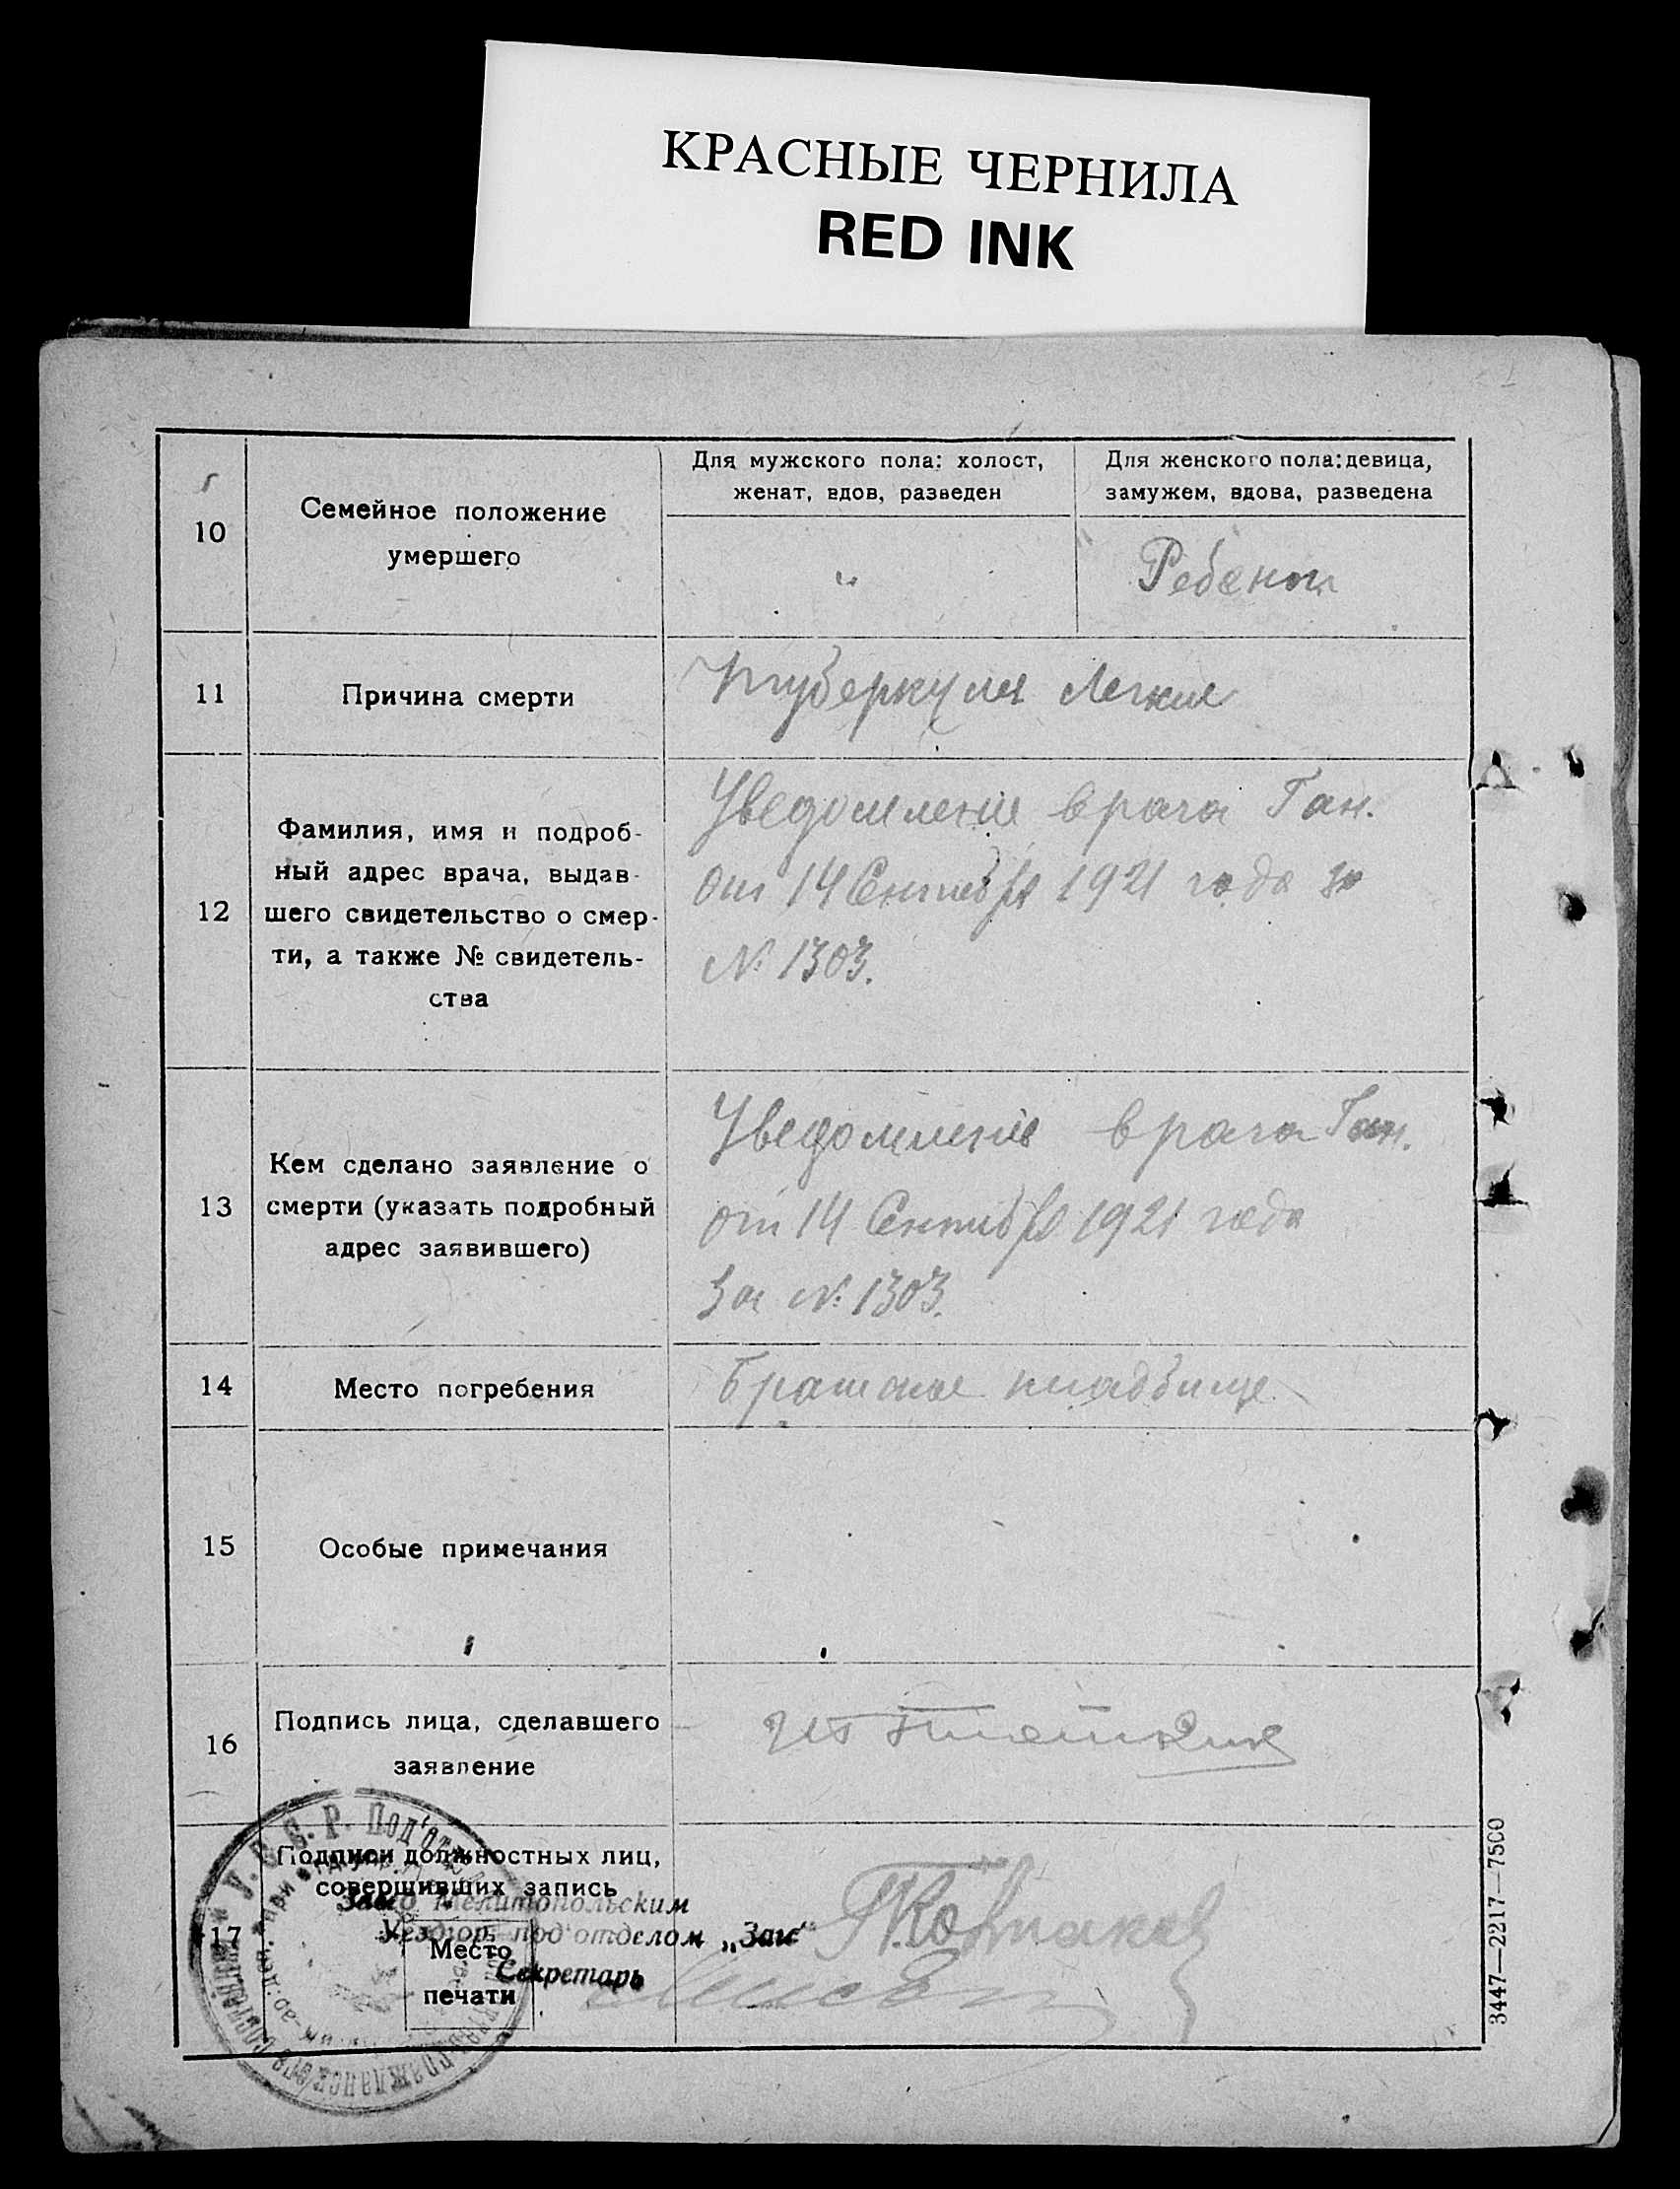 КРАСНЫЕ ЧЕРНИЛА
RED INK
10
Семейное положение
умершего
Для мужского пола: холост,
женат, вдов, разведен
Для женского пола: девица,
замужем, вдова, разведена
"
Ребенок
11
Причина смерти
Туберкулез Легких
12
Фамилия, имя и подроб-
ный адрес врача, выдав-
шего свидетельство о смер-
ти, а также № свидетель-
ства
Уведомление врача Ган.
От 14 Сентября 1921 года за
№ 1303.
13
Кем сделано заявление о
смерти (указать подробный
адрес заявившего)
Уведомление врача Ган.
От 14 Сентября 1921 года
За № 1303.
14
Место погребения
Братское кладбище
15
Особые примечания
16
Подпись лица, сделавшего
заявление
17
Подписи должностных лиц,
совершивших запись
Зав. Мелитопольским
Уездгор. под'отделом „Загс"
Секретарь
Место
печати
У. С. С. Р. Под'отдел
3447—2217—7500